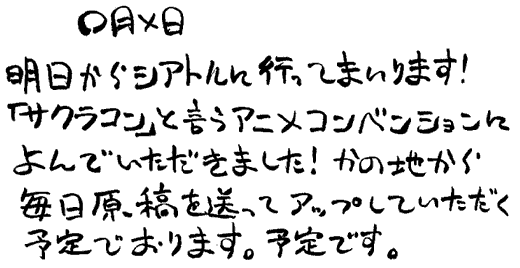 〇月×日
明日からシアトルに行ってまいります!
「サクラコン」と言うアニメコンベンションに
よんでいただきました! かの地から
毎日原稿を送ってアップしていただく
予定でおります。予定です。